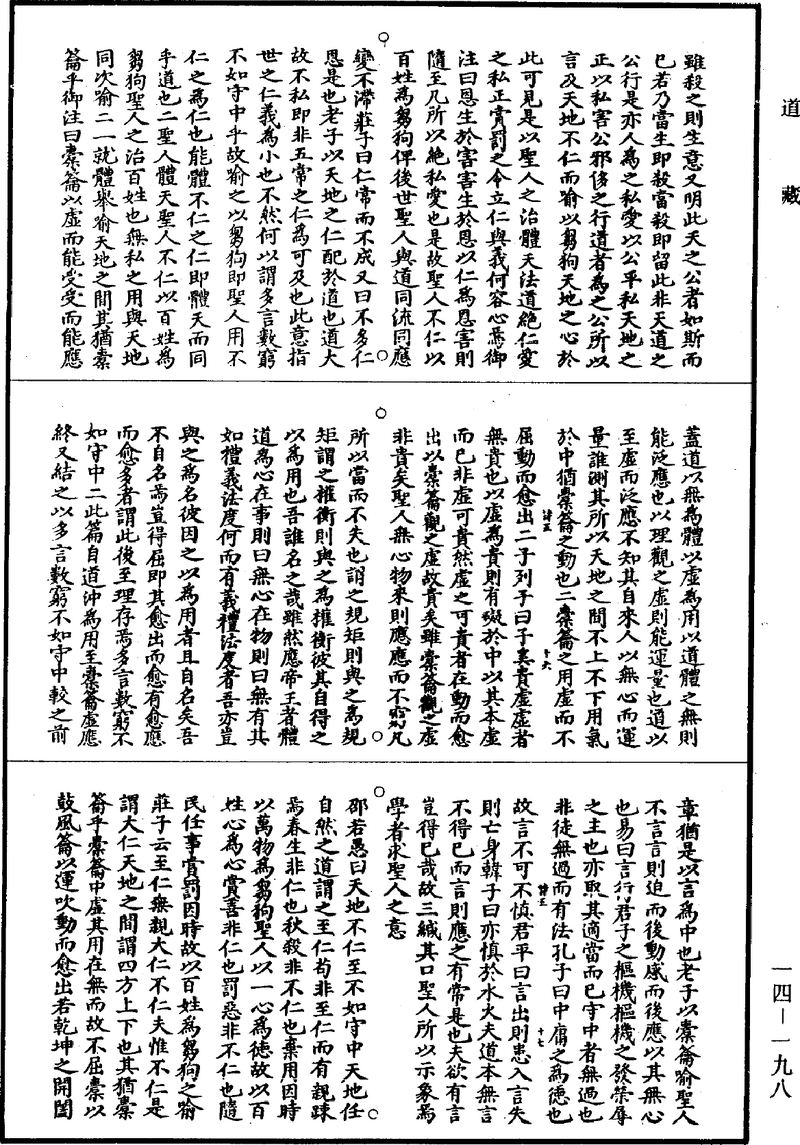 道藏
雖殺之則生意又明此天之公者如斯而
已若乃當生即殺當殺即留此非天道之
公行是亦人為之私愛以公平私天地之
正以私害公邪侈之行遺者為之公所以
言及天地不仁而喻以芻狗天地之心於
此可見是以聖人之治體天法道絕仁愛
之私正賞罰之令立仁與義何容心焉御
注曰恩生於害害生於恩以仁為恩害則
隨至凡所以絕私愛也是故聖人不仁以
百姓為芻狗俾後世聖人與道同流同應
變不滯莊子曰仁常而不成又曰不多仁
恩是也老子以天地之仁配於道也道大
故不私即非五常之仁為可及也此意指
世之仁義為小也不然何以謂多言數窮
不如守中乎故喻之以芻狗即聖人用不
仁之為仁也能體不仁之仁即體天而同
乎道也二聖人體天聖人不仁以百姓為
芻狗聖人之治百姓也無私之用與天地
同次喻二一就體舉喻天地之間其猶橐
籥乎御注曰橐籥以虛而能受受而能應
蓋道以無為體以虛為用以道體之無則
能泛應也以理觀之虛則能運量也道以
至虛而泛應不知其自來人以無心而運
量誰測其所以天地之間不上不下用氣
於中猶橐籥之動也二橐籥之用虛而不
屈動而愈出二子列子曰子奚貴虛虛者
無貴也以虛為貴則有礙於中以其本虛
而已非虛可貴然虛之可貴者在動而愈
出以橐籥觀之虛故貴矣雖橐籥觀之虛
非貴矣聖人無心物來則應應而不窮凡
所以當而不失也謂之規矩則與之為規
矩謂之權衡則與之為權衡彼其自得之
以為用也吾誰名之哉雖然應帝王者體
道為心在事則曰無心在物則曰無有其
如禮義法度何而有義禮法度者吾亦豈
與之為名彼因之以為用者且自名矣吾
不自名焉豈得屈即其愈出而愈有愈應
而愈多者謂此後至理存焉多言數窮不
如守中二此篇自道沖為用至橐籥虛應
終又結之以多言數窮不如守中較之前
章猶是以言為中也老子以橐籥喻聖人
不言言則迫而後動感而後應以其無心
也易曰言行君子之樞機樞機之發榮辱
之主也亦取其適當而已守中者無過也
非徒無過而有法孔子曰中庸之為德也
故言不可不慎君平曰言出則患入言失
則亡身韓子曰亦慎於水火夫道本無言
不得已而言則應之有常是也夫欲有言
豈得已哉故三緘其口聖人所以示象焉
學者求聖人之意
邵若愚曰天地不仁至不如守中天地任
自然之道謂之至仁苟非至仁而有親踈
焉春生非仁也秋殺非不仁也棄用因時
以萬物為芻狗聖人以一心為德故以百
姓心為心賞善非仁也罰惡非不仁也隨
民任事賞罰因時故以百姓為芻狗之喻
莊子云至仁無親大仁不仁夫惟不仁是
謂大仁天地之間謂四方上下也其猶橐
籥乎橐籥中虛其用在無而故不屈橐以
鼓風籥以運吹動而愈出若乾坤之開闔
一四—一九八